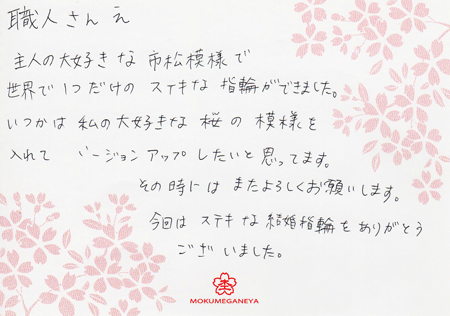 職人さんえ
主人の大好きな市松模様で
世界で1つだけのステキな指輪ができました。
いつかは私の大好きな桜の模様を
入れてバージョンアップしたいと思ってます。
その時にはまたよろしくお願いします。
今回はステキな結婚指輪をありがとう
ございました。
MOKUMEGANEYA